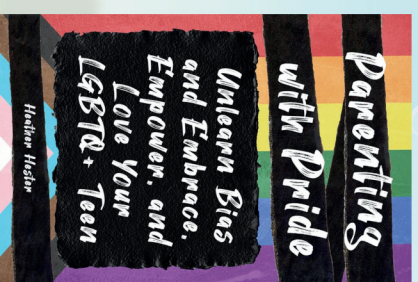 Parenting
with Pride
Unlearn Bias
and Embrace,
Empower, and
Love Your
LGBTQ+ Teen
Heather Hester